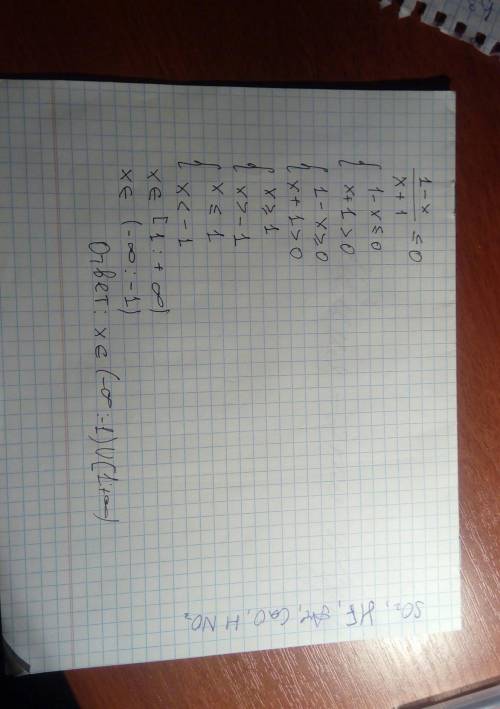 1-x / x+1 ≤ 0
{ 1-x ≤ 0
x+1 > 0
{ 1-x ≥ 0
x+1 > 0
{ x ≥ 1
x > -1
{ x ≤ 1
x < -1
x ∈ [1: +∞)
x ∈ (-∞: -1)
Ответ: x ∈ (-∞: -1) ∪ [1: +∞)
SO₂, HF, CaO, HNO₂